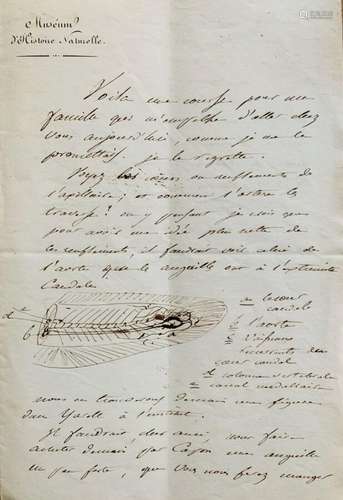 Muséum
d'Histoire Naturelle.
Voilà une course pour une
famille qui m'empêche d'aller chez
vous aujourd'hui, comme je me le
promettais. je le regrette.
Voyez les cœurs ou renflements de
l'axillaire; et comment l'artère les
traverse? en y pensant je suis que
pour avoir une idée plus nette de
les renflements, il faudrait voir celui de
l'aorte que les anguilles ont à l'extrémité
Caudale
a le cœur
caudal
b l'aorte
c
du
cœur caudal
d colonne vertébrale
canal médullaire
d
b
c
a
nous en trouverons demain une figure
dans Yarell à l'institut.
Il faudrait donc aussi, nous faire
acheter demain par Cajon une anguille
un peu forte, que vous nous ferez manger